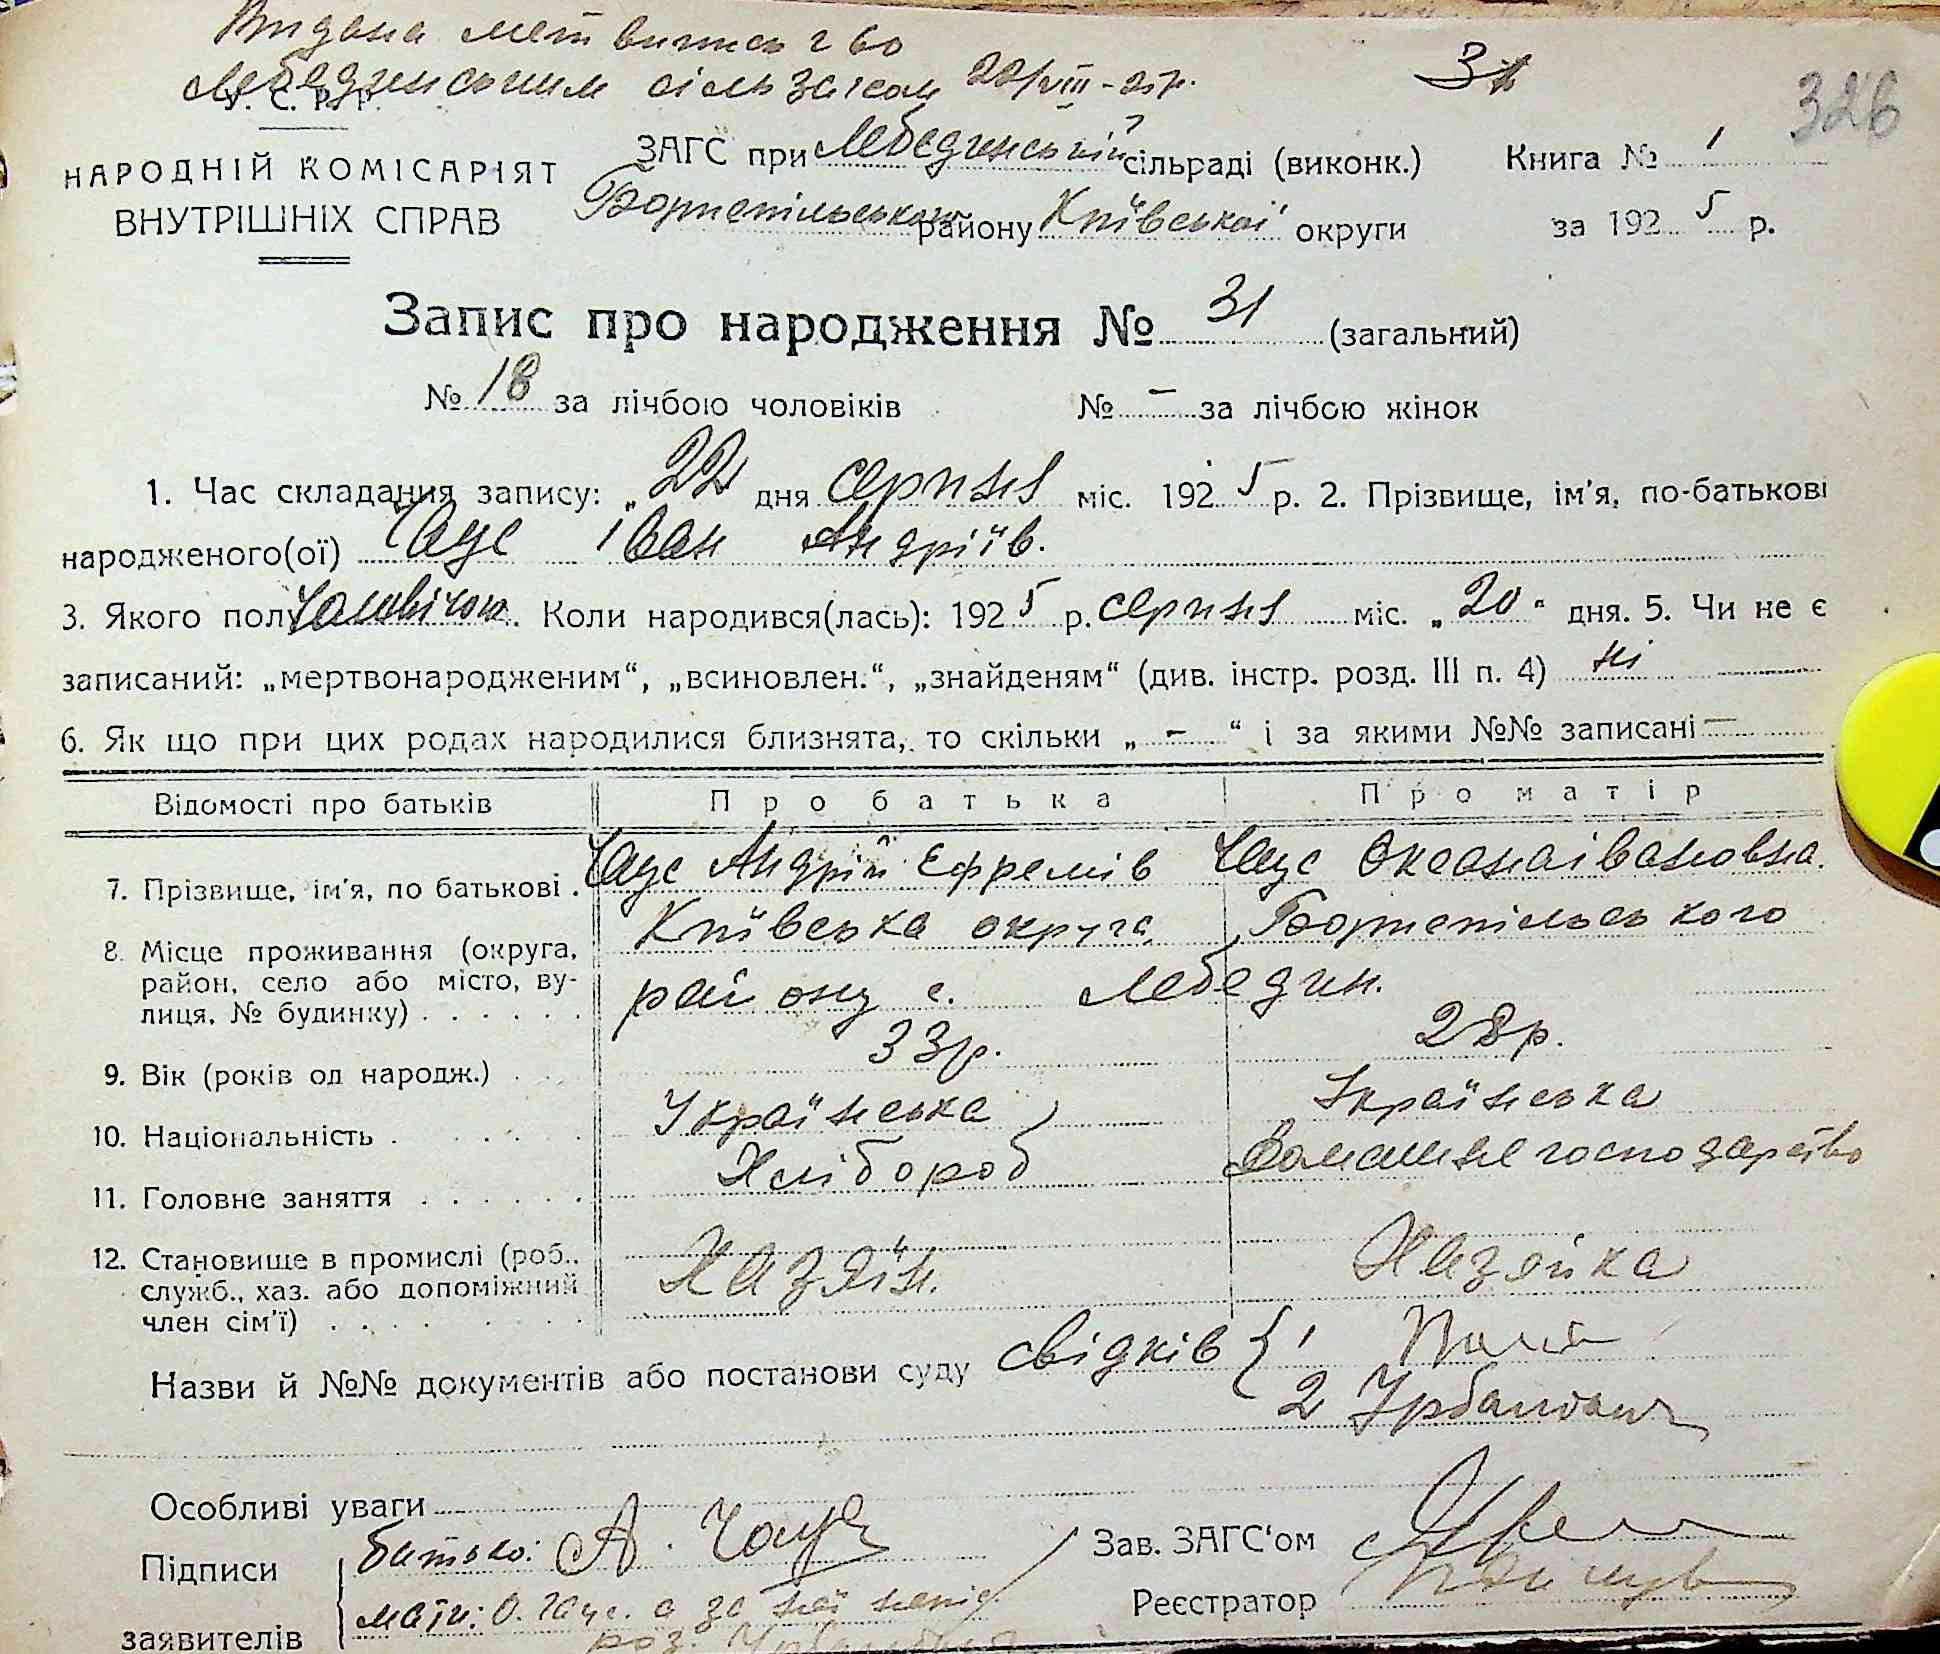 Видана метвипись 2 во
Лебединським сільзагсом 22/VIII-25р.
326
У. С. Р. Р.
НАРОДНІЙ КОМІСАРІЯТ
ВНУТРІШНІХ СПРАВ
ЗАГС при Лебединській сільраді (виконк.) Книга № 1
Бориспільського району Київської округи за 1925 р.
Запис про народження № 31 (загальний)
№ 18 за лічбою чоловіків № — за лічбою жінок
1. Час складання запису: „22 дня серпня міс. 1925 р. 2. Прізвище, ім'я, по-батькові
народженого(ої) Чаус Іван Андріїв.
3. Якого полу Чоловічою. Коли народився(лась): 1925 р. серпня міс. „20" дня. 5. Чи не є
записаний: „мертвонародженим“, „всиновлен.“, „знайденям“ (див. інстр. розд. III п. 4) ні
6. Як що при цих родах народилися близнята, то скільки „ — “ і за якими №№ записані —
Відомості про батьків Про батька Про матір
7. Прізвище, ім'я, по батькові . Чаус Андрій Ефремів Чаус Оксана Івановна.
8. Місце проживання (округа, Київська округа, Бориспільського
район, село або місто, ву- району с. Лебедин.
лиця, № будинку) . . . . . .
9. Вік (років од народж.) . . 33 р. 28 р.
10. Національність . . . . . Українська Українська
11. Головне заняття . . . . . . Хлібороб Домашне господарство
12. Становище в промислі (роб., Хазяїн. Хазяйка
служб., хаз. або допоміжний
член сім'ї) . . . . . . . .
Назви й №№ документів або постанови суду свідків { 1
2 Урбанович
Особливі уваги
Підписи батько: А. Чаус Зав. ЗАГС‘ом
мати: О. Чаус. а за неї непис. Реєстратор
заявителів роз.